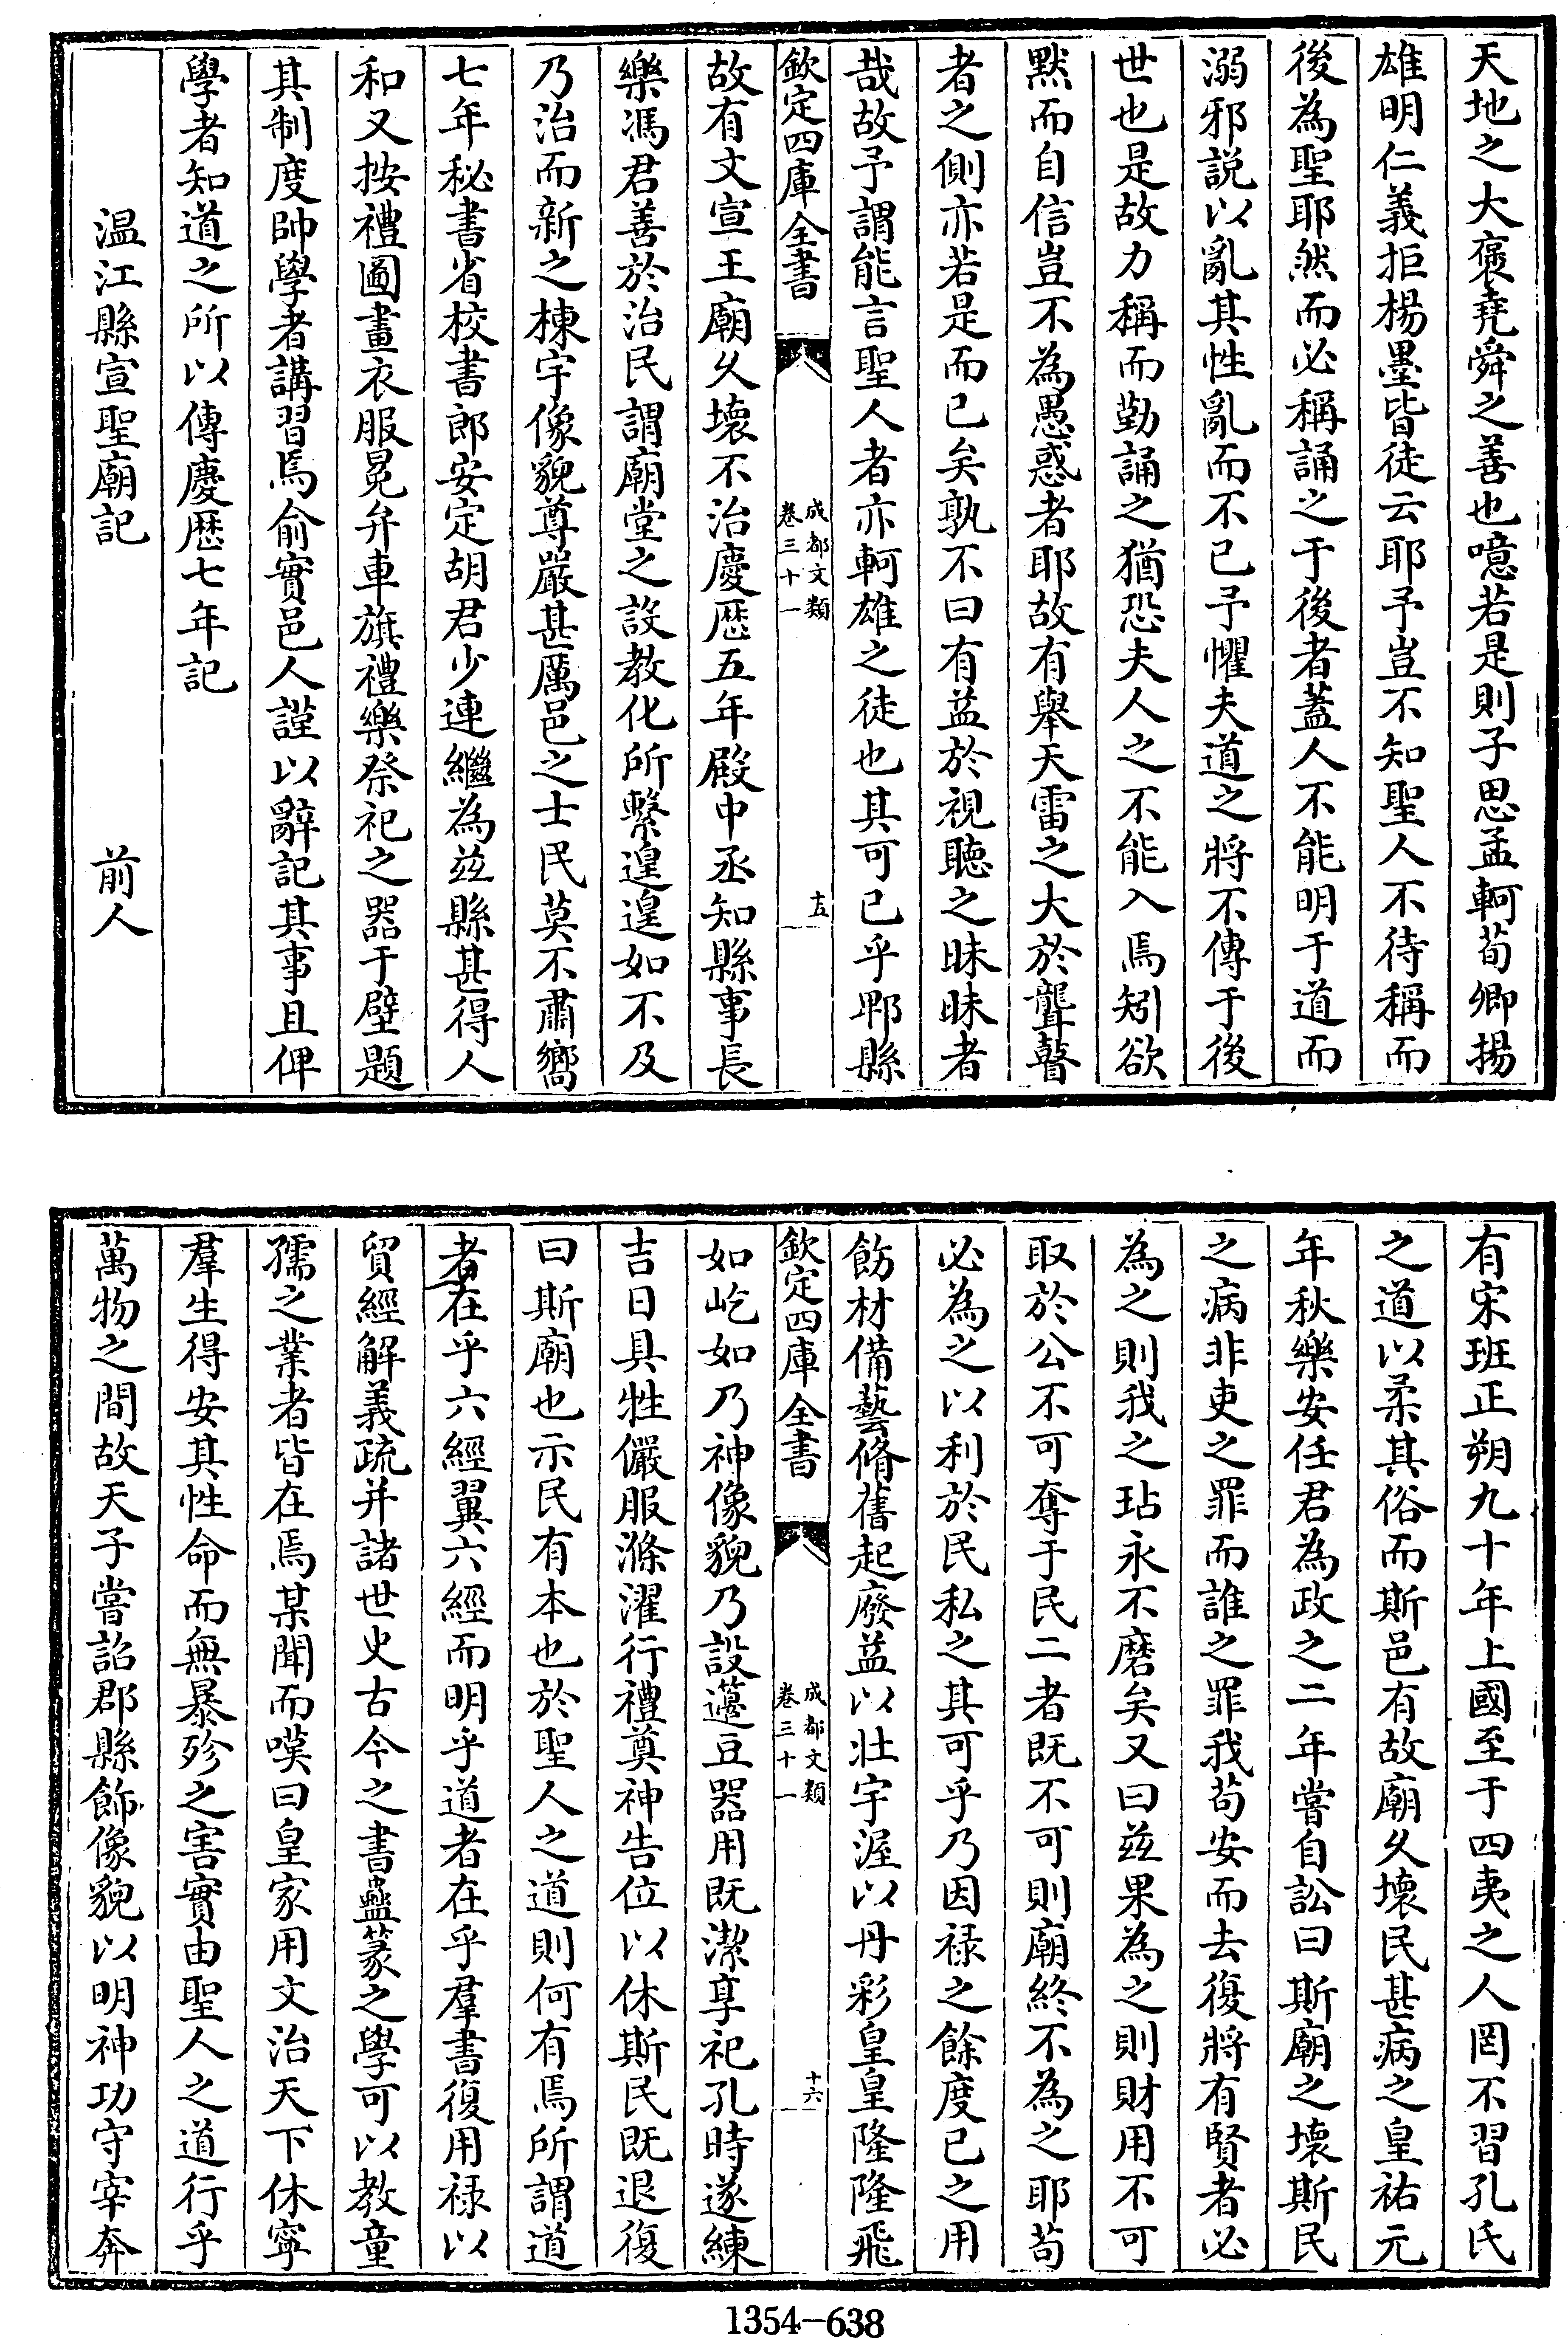 天地之大褒堯舜之善也噫若是則子思孟軻荀卿揚
雄明仁義拒楊墨皆徒云耶予豈不知聖人不待稱而
後為聖耶然而必稱誦之于後者蓋人不能明于道而
溺邪說以亂其性亂而不已予懼夫道之將不傳于後
世也是故力稱而勤誦之猶恐夫人之不能入焉矧欲
默而自信豈不為愚惑者耶故有舉天雷之大於聾瞽
者之側亦若是而已矣孰不曰有益於視聽之昧昧者
哉故予謂能言聖人者亦軻雄之徒也其可已乎郫縣
欽定四庫全書
成都文類
卷三十一
十五
故有文宣王廟久壞不治慶歷五年殿中丞知縣事長
樂馮君善於治民謂廟堂之設教化所繫遑遑如不及
乃治而新之棟宇像貌尊嚴甚厲邑之士民莫不肅嚮
七年秘書省校書郎安定胡君少連繼為茲縣甚得人
和又按禮圖畫衣服冕弁車旗禮樂祭祀之器于壁題
其制度帥學者講習焉俞實邑人謹以辭記其事且俾
學者知道之所以傳慶歷七年記
温江縣宣聖廟記 前人
有宋班正朔九十年上國至于四夷之人罔不習孔氏
之道以柔其俗而斯邑有故廟久壞民甚病之皇祐元
年秋樂安任君為政之二年嘗自訟曰斯廟之壞斯民
之病非吏之罪而誰之罪我苟安而去復將有賢者必
為之則我之玷永不磨矣又曰茲果為之則財用不可
取於公不可奪于民二者既不可則廟終不為之耶苟
必為之以利於民私之其可乎乃因祿之餘度已之用
飭材備藝脩舊起廢益以壯宇渥以丹彩皇皇隆隆飛
欽定四庫全書
成都文類
卷三十一
十六
如屹如乃神像貌乃設籩豆器用既潔享祀孔時遂練
吉日具牲儼服滌濯行禮奠神告位以休斯民既退復
曰斯廟也示民有本也於聖人之道則何有焉所謂道
者在乎六經翼六經而明乎道者在乎羣書復用祿以
貿經解義疏并諸世史古今之書蟲篆之學可以教童
孺之業者皆在焉某聞而嘆曰皇家用文治天下休寧
羣生得安其性命而無暴殄之害實由聖人之道行乎
萬物之間故天子嘗詔郡縣飾像貌以明神功守宰奔
1354-638